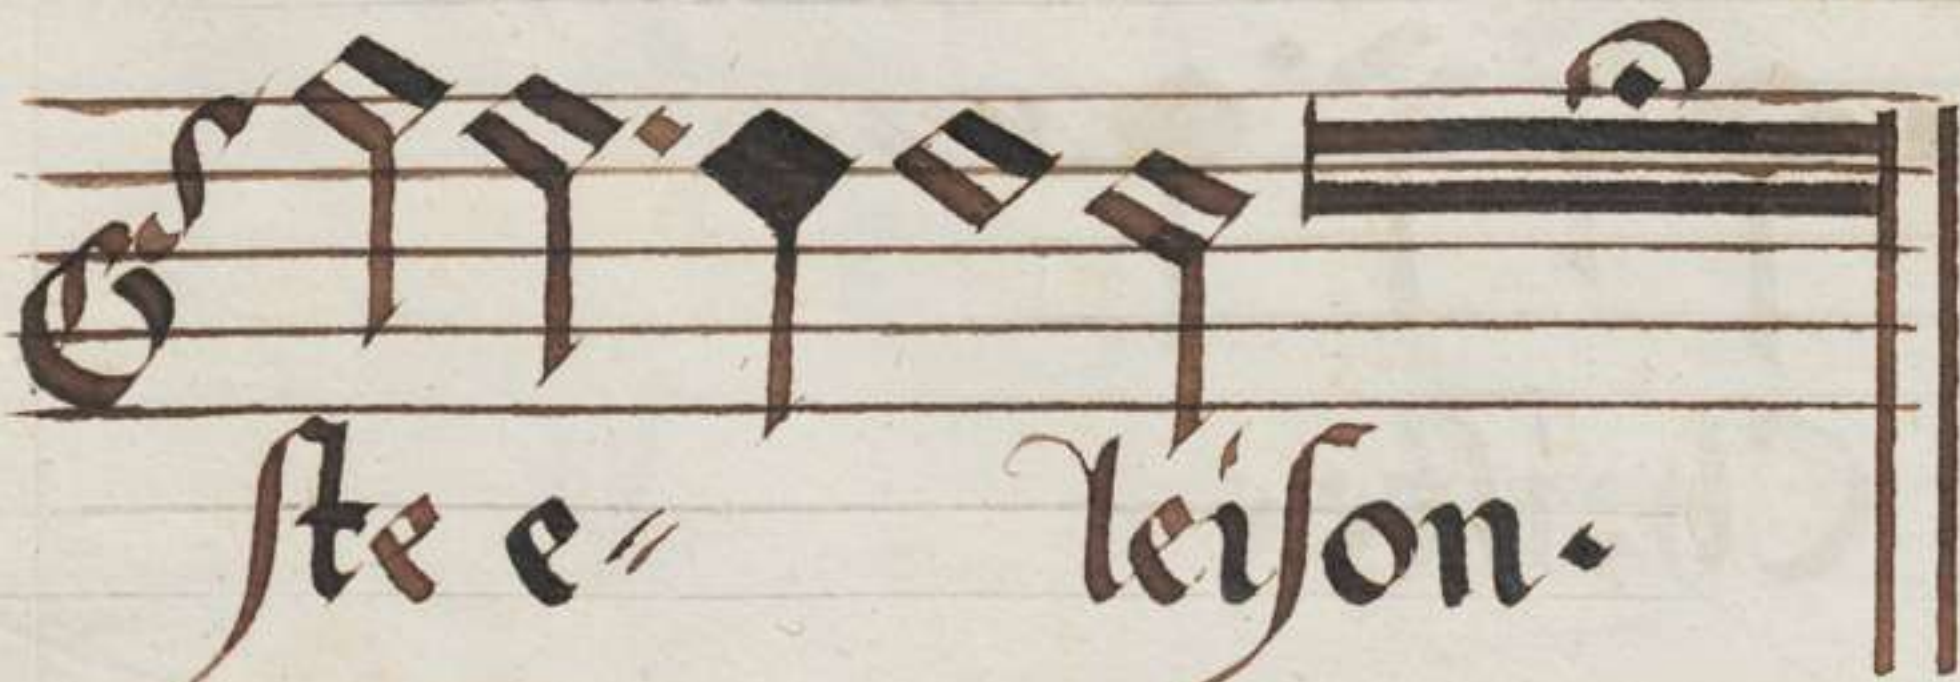 ſte e〃 leiſon.